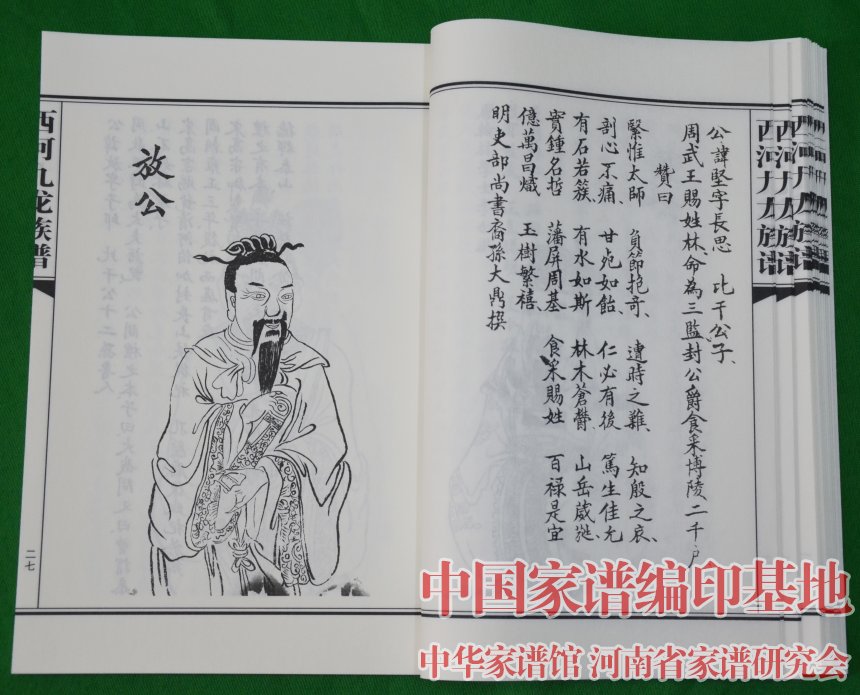 西河九龙族谱
公諱堅字長思 比干公子、
周武王賜姓林、命為三監封公爵食采博陵二千户
贊曰
緊惟太師 負節抱奇、 遭時之難、 知殷之哀、
剖心不痛、 甘死如飴、 仁必有後 篤生佳允
有石若簇、 有水如斯 林木蒼鬱、 山岳葳蕤、
實鍾名哲 藩屏周基 食采賜姓 百禄是宜
億萬昌熾 玉樹繁禧、
明吏部尚書裔孫大鼎撰
放公
西河九龙族谱
二七
中国家谱编印基地
中华家谱馆 河南省家谱研究会